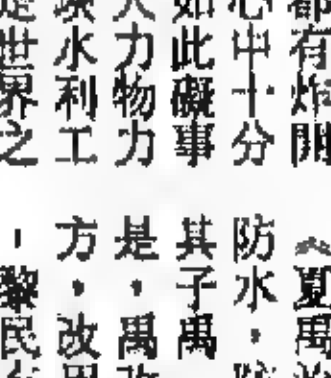 都有炸開
心中十分
如此礙事
力物力
水利工
是世界之
《夏禹
防水，
其子禹
是，禹改
方，改用
黎民